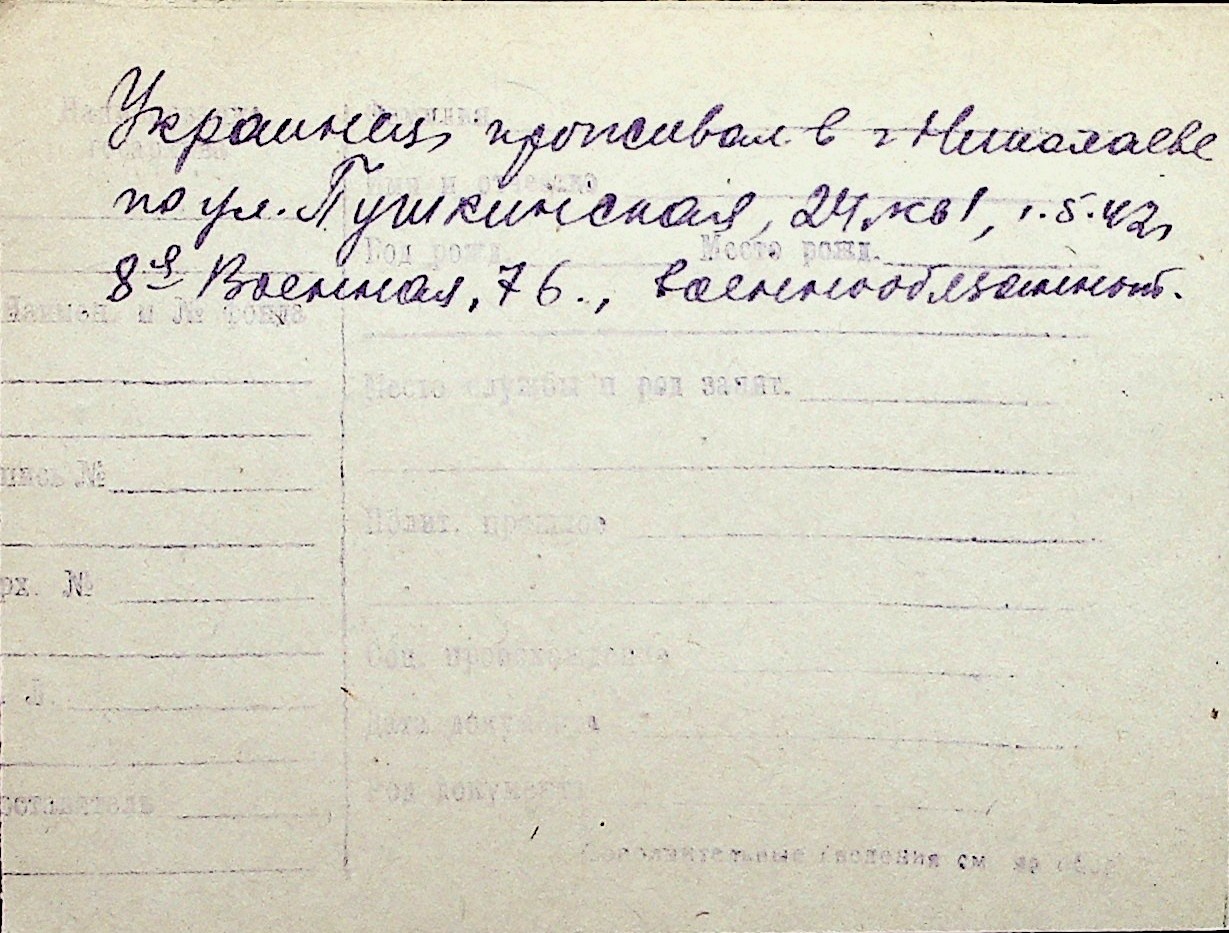 Украинец, проживал в г Николаеве
по ул. Пушкинская, 24, кв 1, 1.5.42,
8я Военная, 76., военнообязанный.
Фамилия
Имя и отчество
Год рожд. Место рожд.
Наимен. и № фонда
Место службы и род занят.
пись №
Полит. прошлое
рх. №
Соц. происхождение
Л.
Дата документа
оставителя
Род документа
Дополнительные сведения см на обор